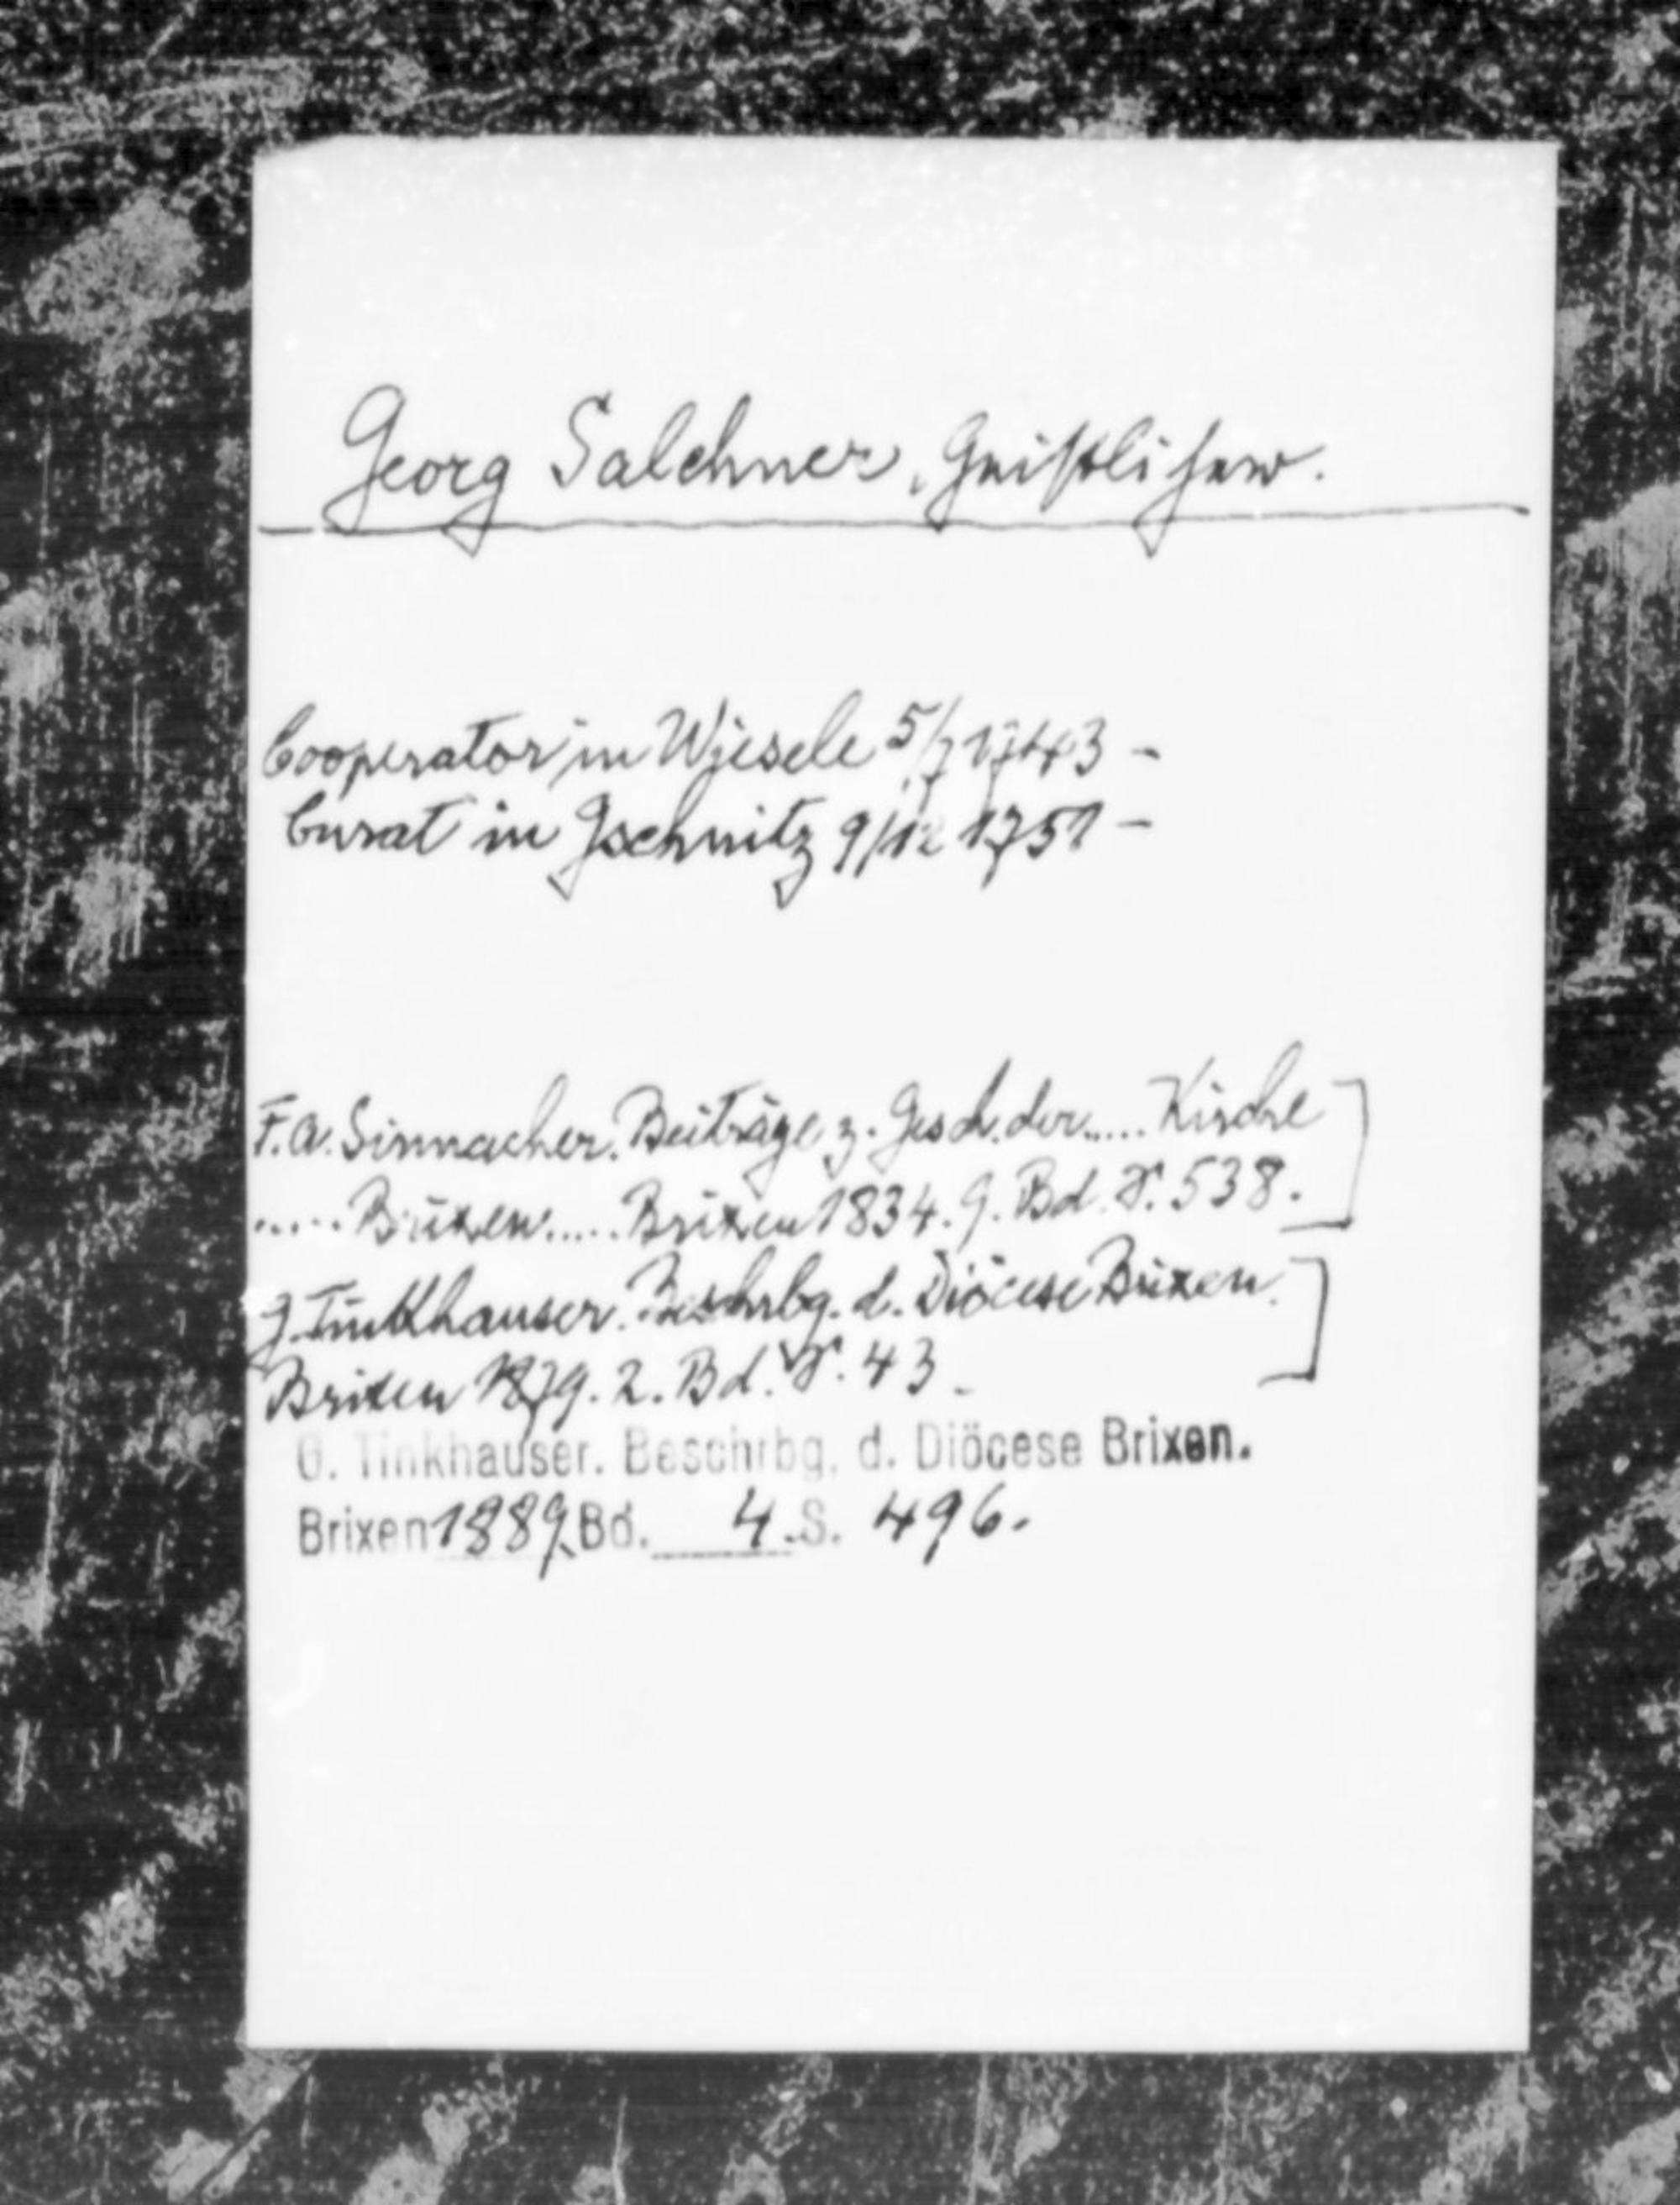 Georg Salchner, Geistlicher.
Cooperator in Wiesele 5/7 1743 –
Curat in Gschnitz 9/12 1751 –
F. A. Sinnacher. Beiträge z. Gesch. der..... Kirche
..... Brixen..... Brixen 1834. 9. Bd. S. 538.
G. Tinkhauser. Beschrbg. d. Diöcese Brixen.
Brixen 1879. 2. Bd. S. 43.
G. Tinkhauser. Beschrbg. d. Diöcese Brixen.
Brixen 1889. Bd. 4. S. 496.